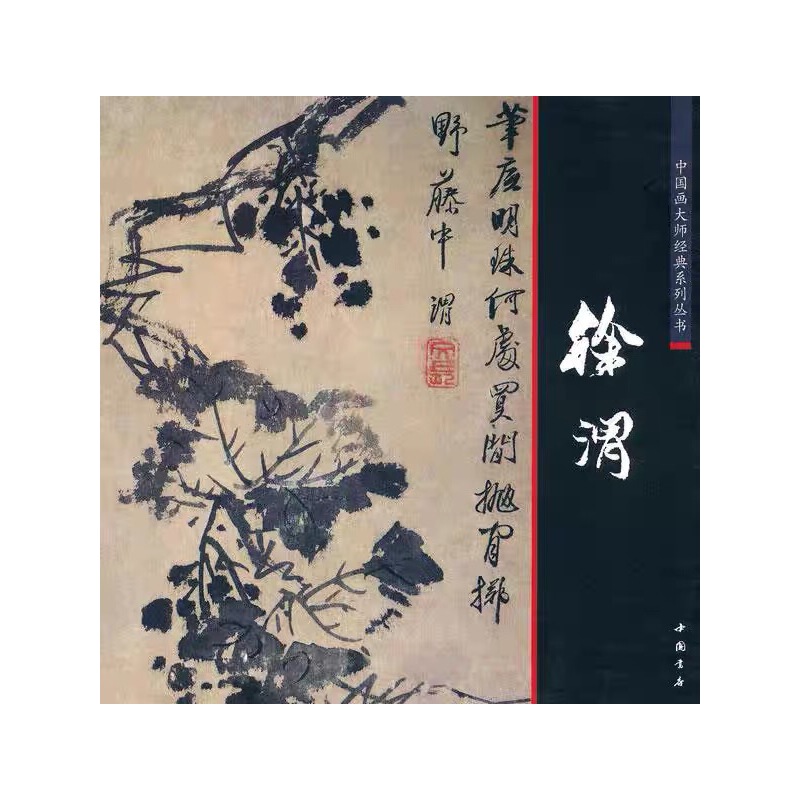 中国画大师经典系列丛书
徐渭
中国书店
筆底明珠何處買閒拋閒擲
野藤中 渭